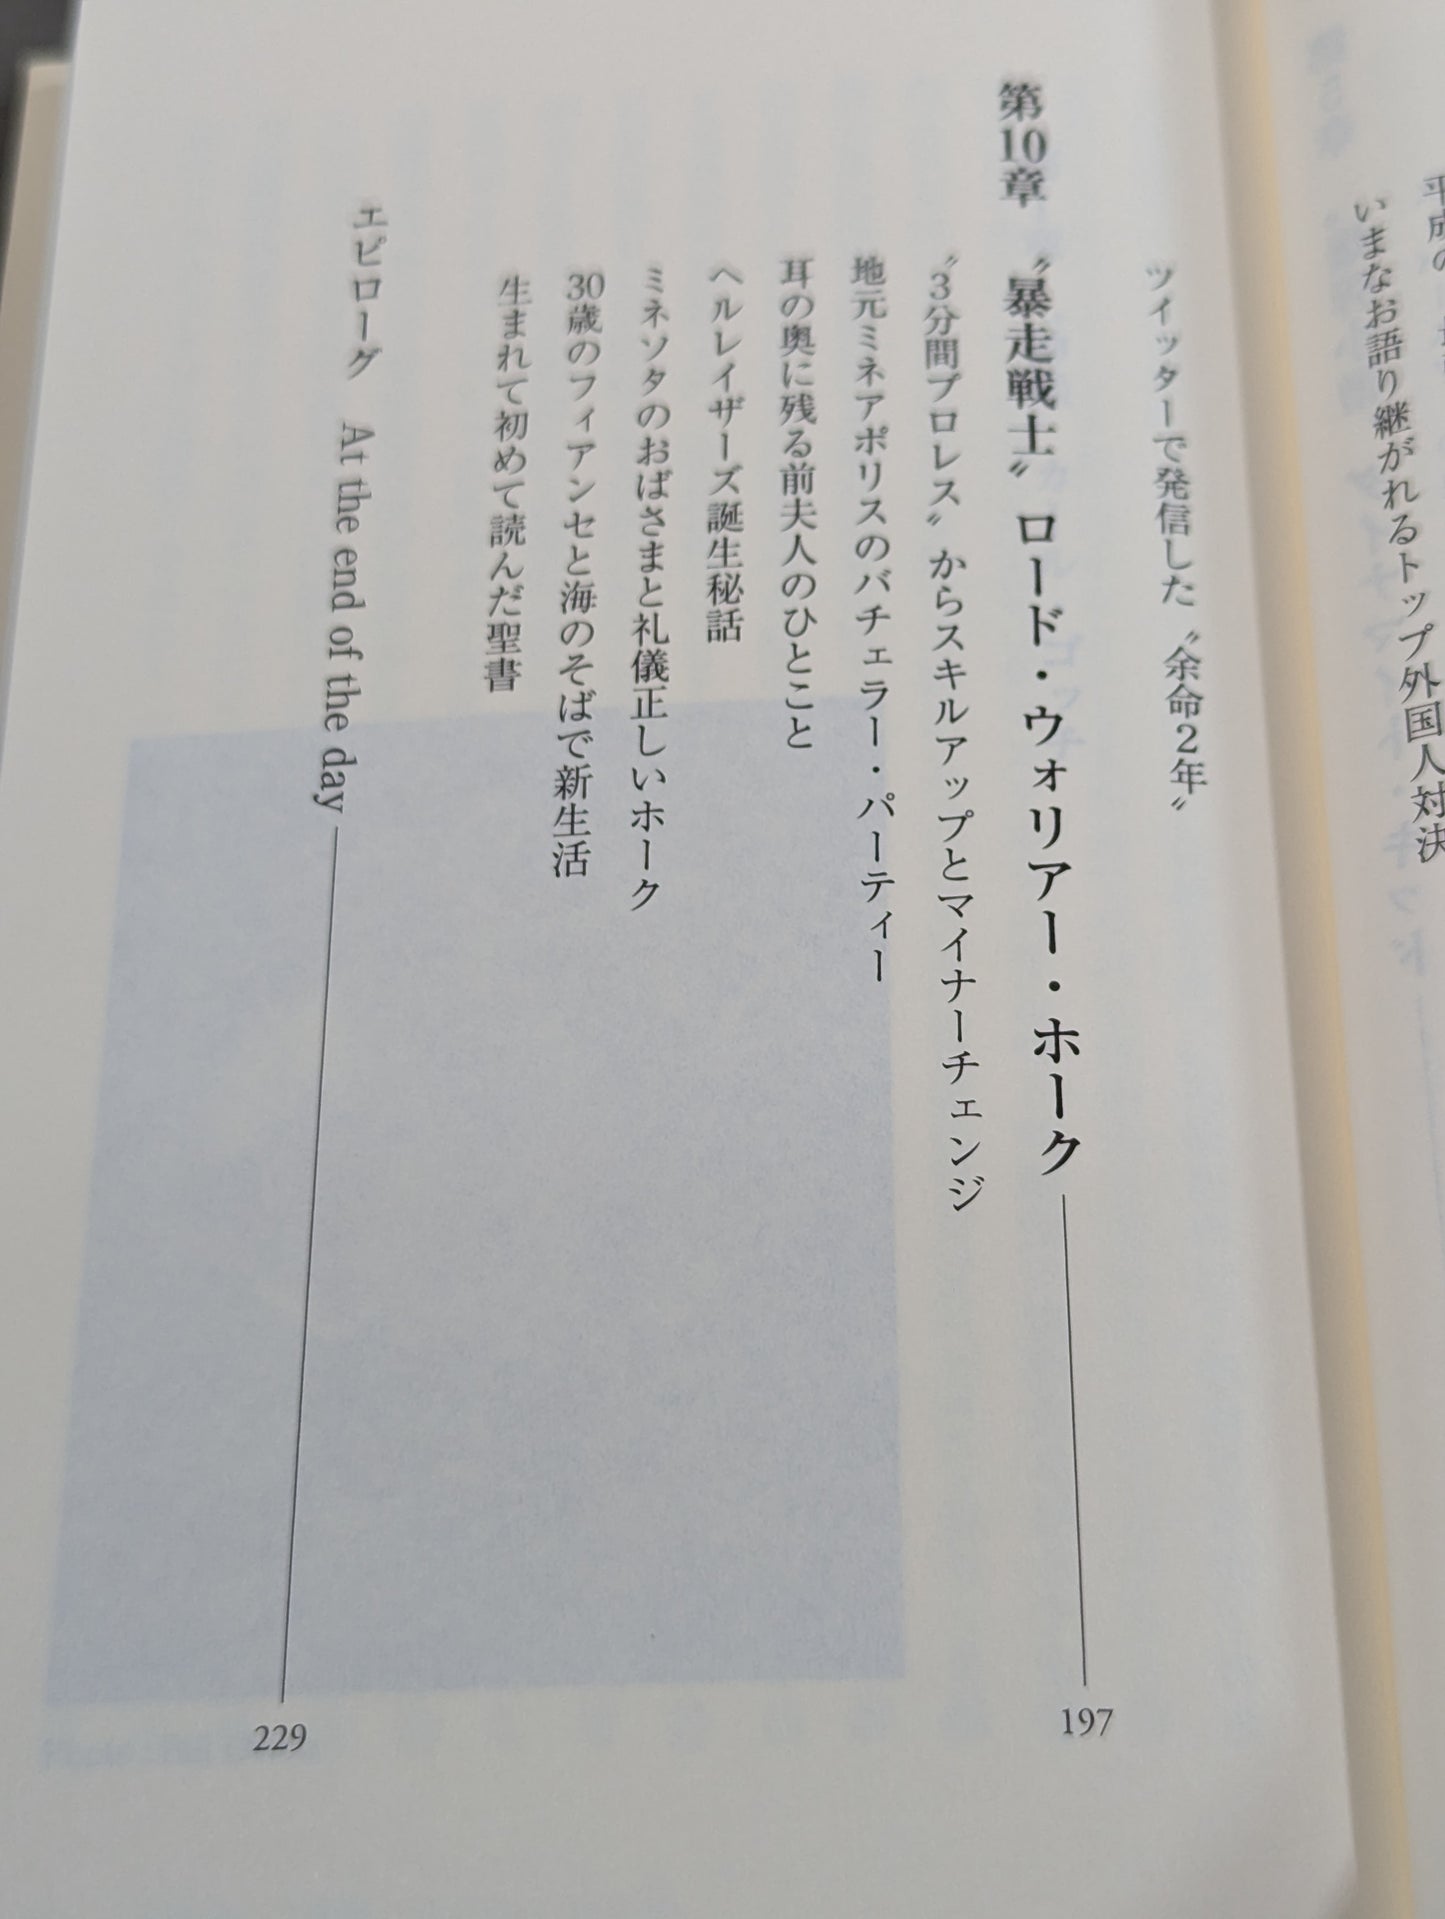 いまなお語り継がれるトップ外国人対決
ツイッターで発信した〝余命2年〟
第10章 〝暴走戦士〟ロード・ウォリアー・ホーク 197
〝3分間プロレス〟からスキルアップとマイナーチェンジ
地元ミネアポリスのバチェラー・パーティー
耳の奥に残る前夫人のひとこと
ヘルレイザーズ誕生秘話
ミネソタのおばさまと礼儀正しいホーク
30歳のフィアンセと海のそばで新生活
生まれて初めて読んだ聖書
エピローグ At the end of the day 229